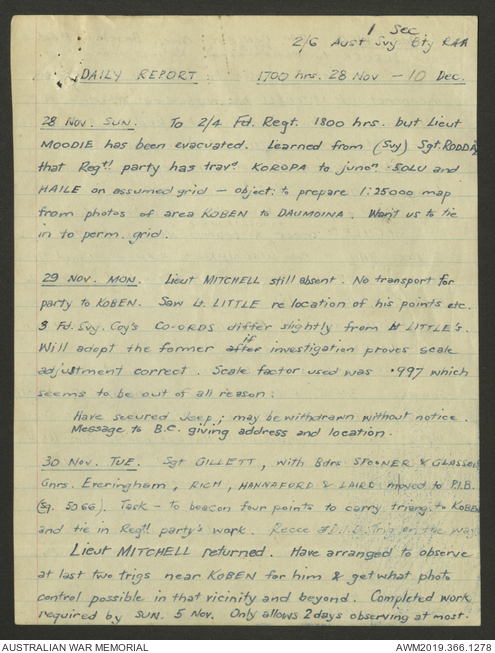 1 Sec
2/6 Aust Svy Bty RAA
DAILY REPORT 1700 hrs. 28 Nov - 10 Dec.
28 NOV. SUN. To 2/4 Fd. Regt. 1800 hrs. but Lieut
MOODIE has been evacuated. Learned from (Svy) Sgt. RODDA,
that Regtl party has travd KOROPA to juncn SOLU and
HAILE on assumed grid - object: to prepare 1:25000 map
from photos of area KOBEN to DAUMOINA. Want us to tie
in to perm. grid.
29 NOV. MON. Lieut MITCHELL still absent. No transport for
party to KOBEN. Saw Lt. LITTLE re location of his points etc.
3 Fd. Svy. Coy's CO-ORDS differ slightly from Lt LITTLE'S.
Will adopt the former after if investigation proves scale
adjustment correct. Scale factor used was .997 which
seems to be out of all reason.
Have secured Jeep; may be withdrawn without notice.
Message to B.C. giving address and location.
30 NOV. TUE. Sgt GILLETT, with Bdrs SPOONER & GLASSER
Gnrs. Everingham, RICH, HANNAFORD & LAIRD moved to P.I.B.
(Sq. 5066). Task - to beacon four points to carry triang. to KOBEN
and tie in Regtl party's work. Recce of P.I.B. Trig on the way
Lieut MITCHELL returned. Have arranged to observe
at last two trigs near KOBEN for him & get what photo
control possible in that vicinity and beyond. Completed work
required by SUN. 5 NOV. Only allows 2 days observing at most.
AUSTRALIAN WAR MEMORIAL AWM2019.366.1278